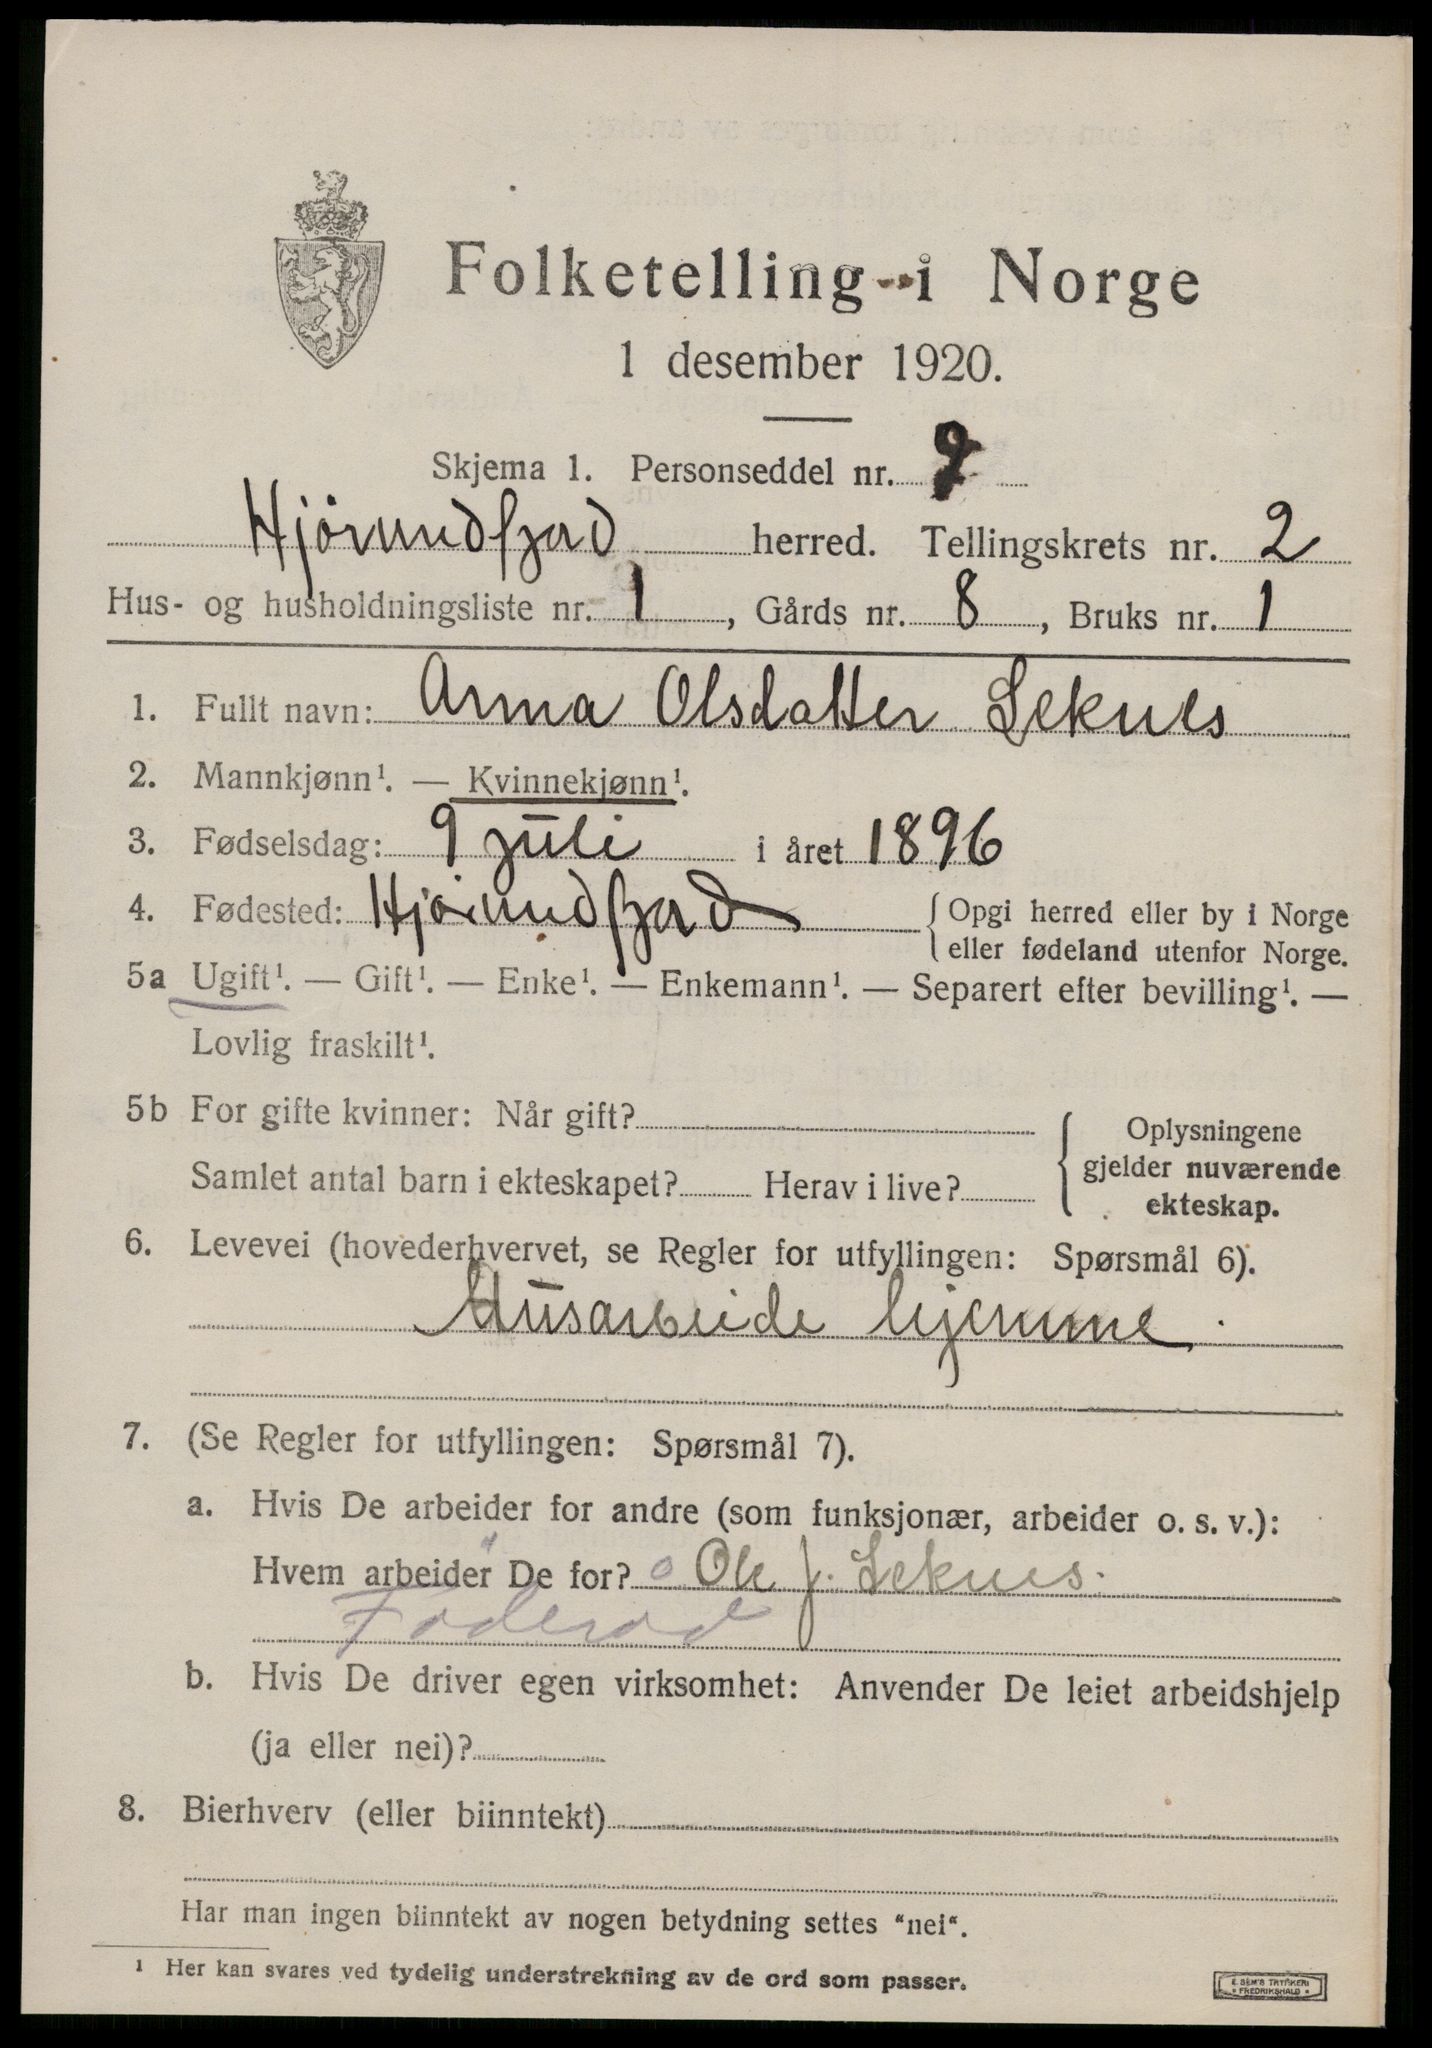 Folketelling i Norge
1 desember 1920.
Skjema 1. Personseddel nr.
Hjörundfjord herred. Tellingskrets nr. 2
Hus- og husholdningsliste nr. 1, Gårds nr. 8, Bruks nr. 1
1. Fullt navn: Anna Olsdatter Leknes
2. Mannkjønn¹. — Kvinnekjønn¹.
3. Fødselsdag: 9 juli i året 1896
4. Fødested: Hjörundfjord {Opgi herred eller by i Norge
eller fødeland utenfor Norge.
5a Ugift¹. — Gift¹. — Enke¹. — Enkemann¹. — Separert efter bevilling¹. —
Lovlig fraskilt¹.
5b For gifte kvinner: Når gift?
Samlet antal barn i ekteskapet? Herav i live?
Oplysningene
gjelder nuværende
ekteskap.
6. Levevei (hovederhvervet, se Regler for utfyllingen: Spørsmål 6).
Husarbeide hjemme.
7. (Se Regler for utfyllingen: Spørsmål 7).
a. Hvis De arbeider for andre (som funksjonær, arbeider o. s. v.):
Hvem arbeider De for? Ole J. Leknes.
Føderåd
b. Hvis De driver egen virksomhet: Anvender De leiet arbeidshjelp
(ja eller nei)?
8. Bierhverv (eller biinntekt)
Har man ingen biinntekt av nogen betydning settes "nei".
¹ Her kan svares ved tydelig understrekning av de ord som passer.
E. SEM'S TRYKKERI
FREDRIKSHALD